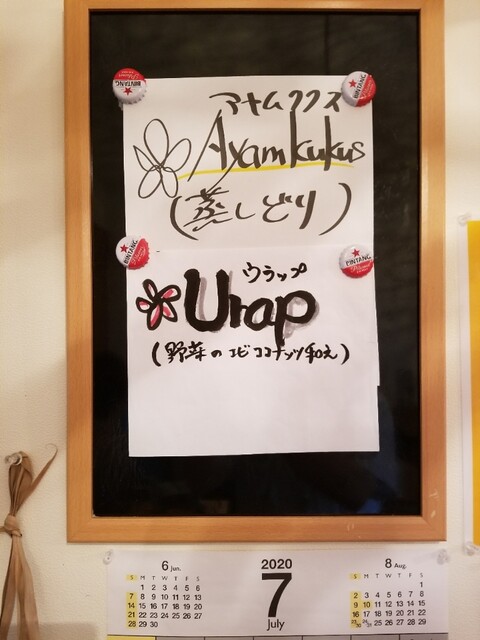 BINTANG
BINTANG
アヤムククス
Ayam kukus
(蒸しどり)
BINTANG
BINTANG
ウラップ
Urap
(野菜のエビココナッツ和え)
6 Jun.
S M T W T F S
1 2 3 4 5 6
7 8 9 10 11 12 13
14 15 16 17 18 19 20
21 22 23 24 25 26 27
28 29 30
2020
7
July
8 Aug.
S M T W T F S
1
2 3 4 5 6 7 8
9 10 11 12 13 14 15
16 17 18 19 20 21 22
23 24 25 26 27 28 29
30 31